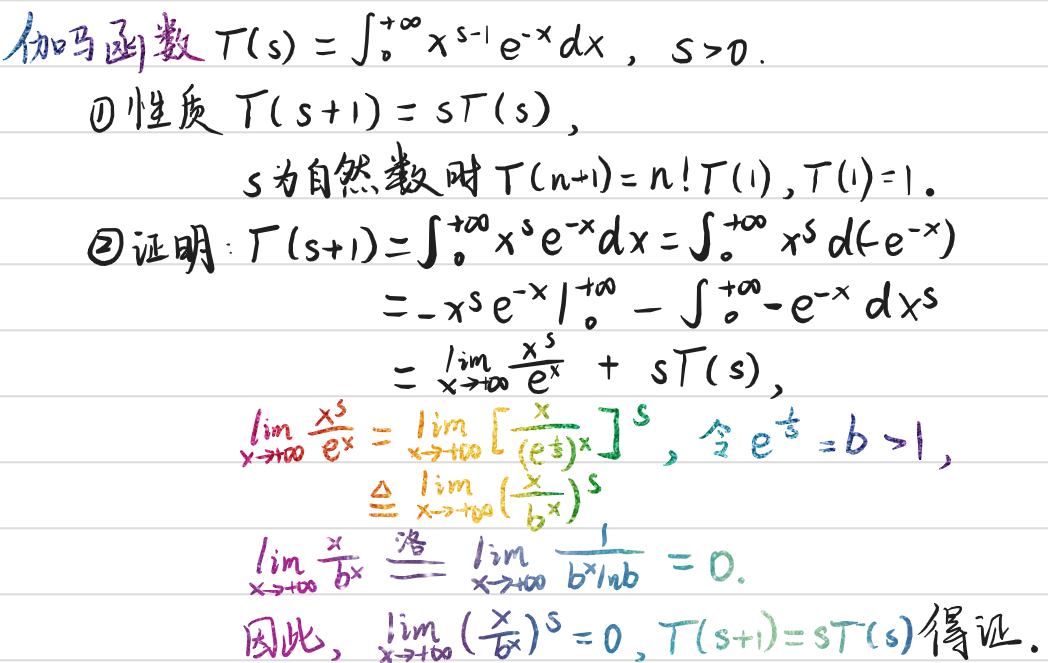 伽马函数 Γ(s) = ∫₀^{+∞} x^{s-1} e^{-x} dx , s>0.
① 性质 Γ(s+1) = sΓ(s) ,
s为自然数时 Γ(n+1) = n!Γ(1) , Γ(1)=1.
② 证明: Γ(s+1) = ∫₀^{+∞} x^s e^{-x} dx = ∫₀^{+∞} x^s d(-e^{-x})
= -x^s e^{-x} |₀^{+∞} - ∫₀^{+∞} -e^{-x} dx^s
= lim_{x→+∞} x^s/e^x + sΓ(s) ,
lim_{x→+∞} x^s/e^x = lim_{x→+∞} [x/(e^{1/s})^x]^s , 令 e^{1/s} = b >1 ,
≜ lim_{x→+∞} (x/b^x)^s
lim_{x→+∞} x/b^x 洛= lim_{x→+∞} 1/(b^x lnb) = 0.
因此, lim_{x→+∞} (x/b^x)^s = 0 , Γ(s+1)=sΓ(s) 得证.